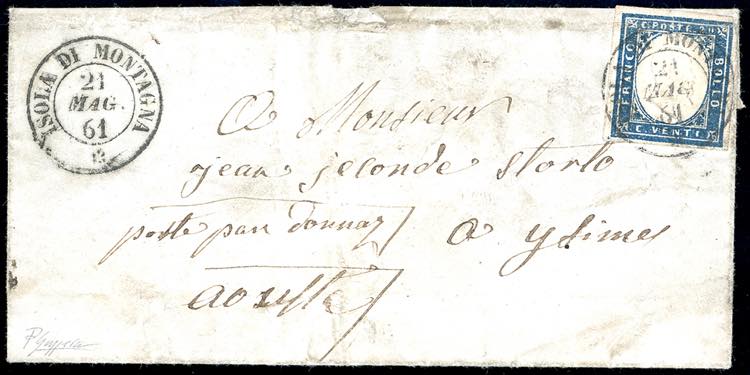 ISOLA DI MONTAGNA
21
MAG.
61
C. POSTE 20
FRANCO
BOLLO
C. VENTI
DI MON
21
MAG
61
a Monsieur
jean jeconde Storto
poste par donnaz / a
aouste /